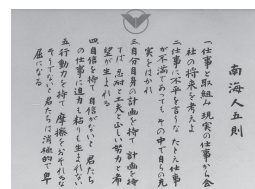 南海人五則
一仕事と取組み 現実の仕事から会
社の将来を考えよ
二仕事に不平を言うな たとえ仕事
が不満であっても その中で自己の充
実をはかれ
三自分自身の計画を持て 計画を持
てば 忍耐と工夫と正しい努力と希
望が生まれる
四自信を持て 自信がないと 君たち
の仕事に迫力も粘りも生まれない
五行動力を持て 摩擦をおそれるな
そうでないと君たちは消極的で卑
屈になる